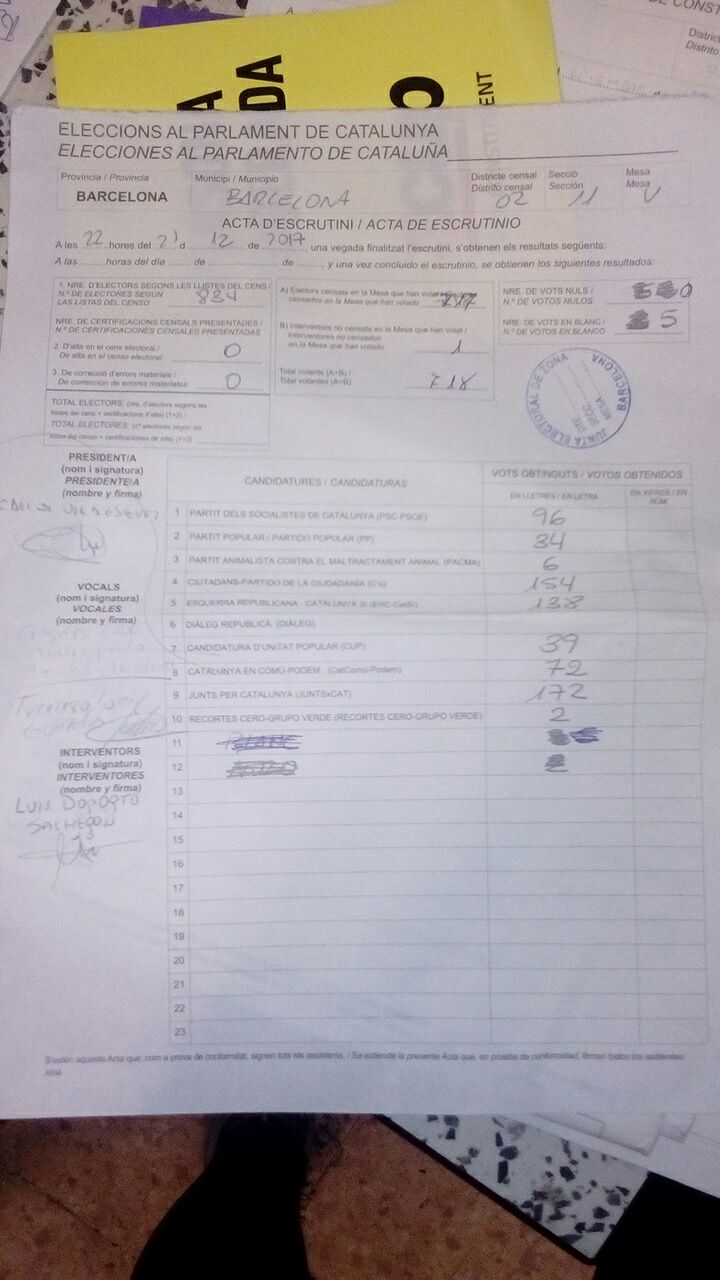 ELECCIONS AL PARLAMENT DE CATALUNYA
ELECCIONES AL PARLAMENTO DE CATALUÑA
Província / Provincia
BARCELONA
Municipi / Municipio
BARCELONA
Districte censal
Distrito censal
02
Secció
Sección
11
Mesa
Mesa
U
ACTA D'ESCRUTINI / ACTA DE ESCRUTINIO
A les 22 hores del 21 d 12 de 2017 una vegada finalitzat l'escrutini, s'obtenen els resultats següents:
A las ........ horas del día ........ de ........ de ........, y una vez concluido el escrutinio, se obtienen los siguientes resultados:
1. NRE. D'ELECTORS SEGONS LES LLISTES DEL CENS /
N.º DE ELECTORES SEGÚN
LAS LISTAS DEL CENSO
834
NRE. DE CERTIFICACIONS CENSALS PRESENTADES /
N.º DE CERTIFICACIONES CENSALES PRESENTADAS
2. D'alta en el cens electoral /
De alta en el censo electoral:
0
3. De correcció d'errors materials /
De corrección de errores materiales:
0
TOTAL ELECTORS: (nre. d'electors segons les
llistes del cens + certificacions d'alta) (1+2) /
TOTAL ELECTORES: (nº electores según las
listas del censo + certificaciones de alta) (1+2)
A) Electors censats en la Mesa que han votat / Electores
censados en la Mesa que han votado
717
B) Interventors no censats en la Mesa que han votat /
Interventores no censados
en la Mesa que han votado
1
Total votants (A+B) /
Total votantes (A+B)
718
NRE. DE VOTS NULS /
N.º DE VOTOS NULOS
0
NRE. DE VOTS EN BLANC /
N.º DE VOTOS EN BLANCO
5
JUNTA ELECTORAL DE ZONA
BARCELONA
DTE.
SECC.
MESA
PRESIDENT/A
(nom i signatura)
PRESIDENTE/A
(nombre y firma)
VOCALS
(nom i signatura)
VOCALES
(nombre y firma)
INTERVENTORS
(nom i signatura)
INTERVENTORES
(nombre y firma)
LUIS DOPORTO
CANDIDATURES / CANDIDATURAS
VOTS OBTINGUTS / VOTOS OBTENIDOS
EN LLETRES / EN LETRA
EN XIFRES / EN NÚM.
1 PARTIT DELS SOCIALISTES DE CATALUNYA (PSC-PSOE) 96
2 PARTIT POPULAR / PARTIDO POPULAR (PP) 34
3 PARTIT ANIMALISTA CONTRA EL MALTRACTAMENT ANIMAL (PACMA) 6
4 CIUTADANS-PARTIDO DE LA CIUDADANÍA (C's) 154
5 ESQUERRA REPUBLICANA - CATALUNYA SÍ (ERC-CatSí) 138
6 DIÀLEG REPUBLICÀ (DIÀLEG)
7 CANDIDATURA D'UNITAT POPULAR (CUP) 39
8 CATALUNYA EN COMÚ-PODEM (CatComú-Podem) 72
9 JUNTS PER CATALUNYA (JUNTSxCAT) 172
10 RECORTES CERO-GRUPO VERDE (RECORTES CERO-GRUPO VERDE) 2
11
12
13
14
15
16
17
18
19
20
21
22
23
S'estén aquesta Acta que, com a prova de conformitat, signen tots els assistents. / Se extiende la presente Acta que, en prueba de conformidad, firman todos los asistentes.